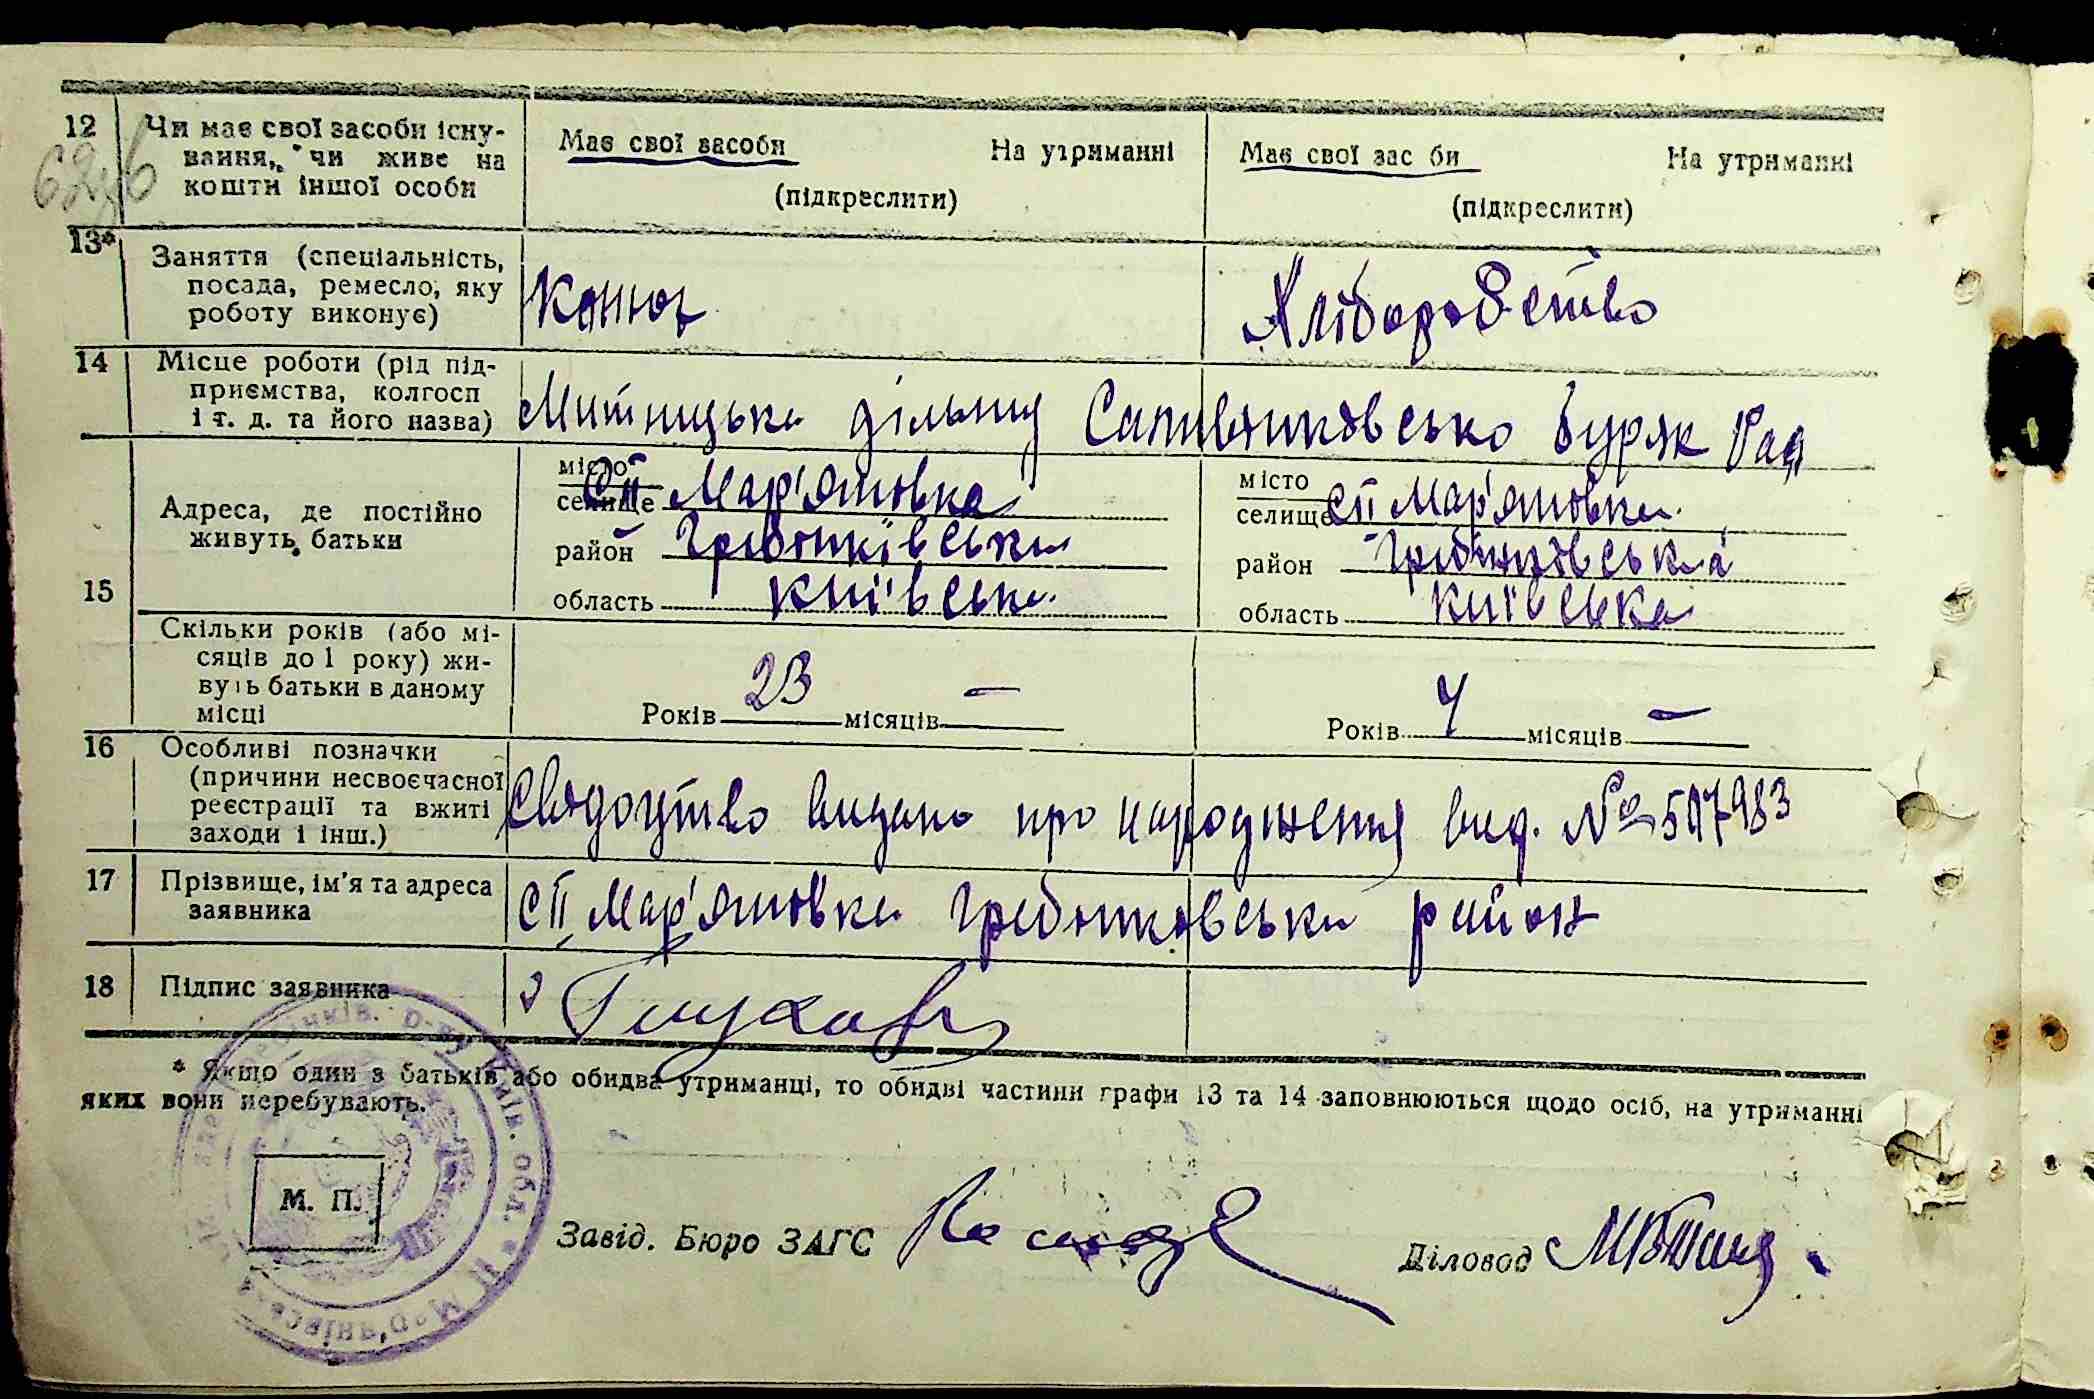 12 Чи має свої засоби існу-
вання, чи живе на
кошти іншої особи
Має свої засоби На утриманні
(підкреслити)
Має свої зас би На утриманні
(підкреслити)
13* Заняття (спеціальність,
посада, ремесло, яку
роботу виконує)
Конюх
Хліборобство
14 Місце роботи (рід під-
приємства, колгосп
і т. д. та його назва)
Митницька дільниця буряк Рад
15 Адреса, де постійно
живуть батьки
місто
селище СІІ Мар'яновка
район Гребінківська
область Київська
місто
селище СІІ Мар'яновка
район Гребінківська
область Київська
Скільки років (або мі-
сяців до 1 року) жи-
вуть батьки в даному
місці
Років 23 місяців —
Років 4 місяців —
16 Особливі позначки
(причини несвоєчасної
реєстрації та вжиті
заходи і інш.)
Свідоцтво видано про народження вид. № 507983
17 Прізвище, ім'я та адреса
заявника
СІІ Мар'яновка Гребонковська район
18 Підпис заявника
* Якщо один з батьків або обидва утриманці, то обидві частини графи 13 та 14 заповнюються щодо осіб, на утриманні
яких вони перебувають.
М. П.
Завід. Бюро ЗАГС
Діловод